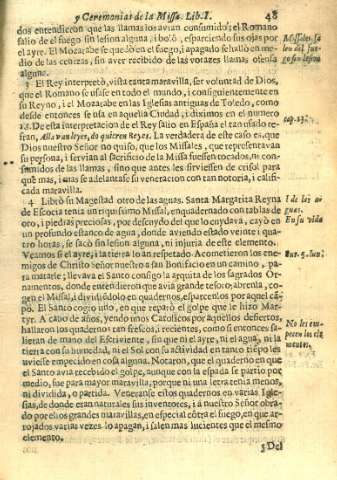 y Ceremonias de la Missa. Lib. I. 48
dos entendieron que las llamas los avian consumido; el Romano
salio de el fuego sin lesion alguna, i bolò, esparciendo sus ojas por
el ayre. El Mozarabe se quedò en el fuego, i apagado se hallò en medio
de las cenizas, sin aver recibido de las vorazes llamas ofensa
alguna.
3 El Rey interpretò, vista tanta maravilla, ser voluntad de Dios,
que el Romano se usase en todo el mundo, i consiguientemente en
su Reyno, i el Mozarabe en las Iglesias antiguas de Toledo, como
desde entonces se usa en aquella Ciudad, i diximos en el numero
15. De esta interpretacion de el Rey salio en España el tan usado refran,
Alla van leyes, do quieren Reyes. La verdadera de este caso es, que
Dios nuestro Señor no quiso, que los Missales, que representavan
su persona, i servian al sacrificio de la Missa fuessen tocados, ni consumidos
de las llamas, sino que antes les sirviessen de crisol para
que mas, i mas se adelantase su veneracion con tan notoria, i calificada
maravilla.
4 Librò su Magestad otro de las aguas. Santa Margarita Reyna
de Escocia tenia un riquissimo Missal, enquadernado con tablas de
oro, i piedras preciosas, por descuydo del que lo cuydava, cayò en
un profundo estanco de agua, donde aviendo estado veinte i quatro
horas, se sacò sin lesion alguna, ni injuria de este elemento.
Veamos si el ayre, i la tierra lo an respetado. Acometieron los enemigos
de Christo Señor nuestro a san Bonifacio en un camino, para
matarle; llevava el Santo consigo la arquita de los sagrados Ornamentos,
donde entendieron que avia grande tesoro; abrenla, cogen
el Missal, i dividiendolo en quadernos, esparcenlos por aquel campo.
El Santo cogio uno, en que reparò el golpe que le hizo Martyr.
A cabo de años, yendo unos Catolicos por aquellos desiertos,
hallaron los quadernos tan frescos, i recientes, como si entonces salieran
de mano del Escriviente, sin que ni el ayre, ni el agua, ni la
tierra con su humedad, ni el Sol con su actividad en tanto tiempo les
uviesse empecido en cosa alguna. Notaron, que el quaderno en que
el Santo avia recebido el golpe, aunque con la espada se partio por
medio, fue para mayor maravilla, porque ni una letra tenia menos,
ni dividida, o partida. Veneranse estos quadernos en varias Iglesias,
de donde eran naturales sus inventores, i à nuestro Señor obrado
por ellos grandes maravillas, en especial cõtra el fuego, en que arrojados
varias vezes lo apagan, i salen mas lucientes que el mesmo
elemento.
5 Del
Missales, sa
leu del fue-
go sin lesion
cap. 13.
I de las a
guas.
En su vida
Sur. 5. Iun.
No les em-
pecen los ele
mentos.